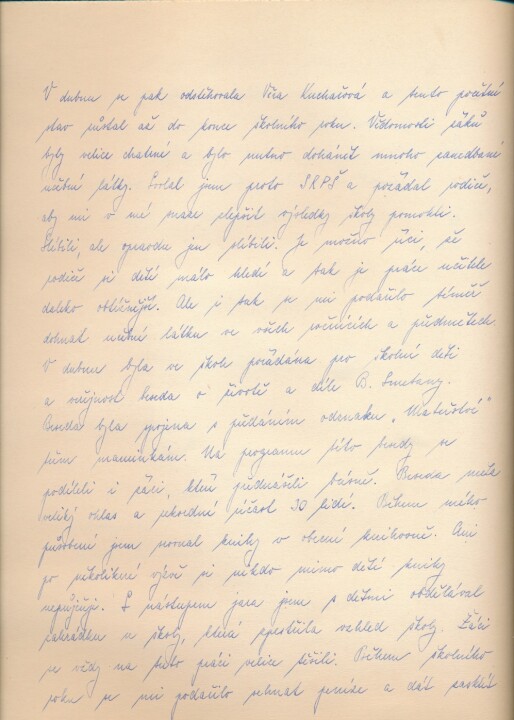 V dubnu se pak odstěhovala Věra Kuchařová a tento početní
stav zůstal až do konce školního roku. Vědomosti žáků
byly velice chatrné a bylo nutno dohánět mnoho zanedbané
učební látky. Svolal jsem proto SRPŠ a požádal rodiče,
aby mi v mé snaze zlepšit výsledky školy pomohli.
Slíbili, ale opravdu jen slíbili. Je možno říci, že
rodiče si dětí málo hledí a tak je práce učitele
daleko obtížnější. Ale i tak se mi podařilo téměř
dohnat učební látku ve všech ročnících a předmětech.
V dubnu byla ve škole pořádána pro školní děti
a veřejnost beseda o životě a díle B. Smetany.
Beseda byla spojena s předáním odznaku „Mateřství"
třem maminkám. Na programu této besedy se
podíleli i žáci, kteří přednášeli básně. Beseda měla
veliký ohlas a rekordní účast 30 lidí. Během mého
působení jsem rovnal knihy v obecní knihovně. Ani
po několikeré výzvě si nikdo mimo dětí knihy
nepůjčuje. S nástupem jara jsem s dětmi obdělával
zahrádku u školy, která zpestřila vzhled školy. Žáci
se vždy na tuto práci velice těšili. Během školního
roku se mi podařilo sehnat peníze a dát zasklít